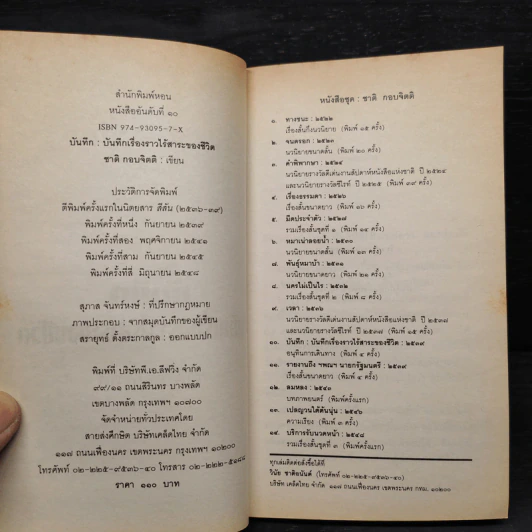 สำนักพิมพ์หอน
หนังสืออันดับที่ ๑๐
ISBN 974-93095-7-X
บันทึก : บันทึกเรื่องราวไร้สาระของชีวิต
ชาติ กอบจิตติ : เขียน
ประวัติการจัดพิมพ์
ตีพิมพ์ครั้งแรกในนิตยสาร สีสัน (๒๕๓๖-๓๙)
พิมพ์ครั้งที่หนึ่ง กันยายน ๒๕๓๙
พิมพ์ครั้งที่สอง พฤศจิกายน ๒๕๔๑
พิมพ์ครั้งที่สาม กันยายน ๒๕๔๕
พิมพ์ครั้งที่สี่ มิถุนายน ๒๕๔๘
สุภาส จันทร์หงษ์ : ที่ปรึกษากฎหมาย
ภาพประกอบ : จากสมุดบันทึกของผู้เขียน
สรายุทธ์ ตั้งตระกาสกูล : ออกแบบปก
พิมพ์ที่ บริษัทพี.เอ.ลีฟวิ่ง จำกัด
๙๙/๑๑ ถนนสิรินธร บางพลัด
เขตบางพลัด กรุงเทพฯ ๑๐๗๐๐
จัดจำหน่ายทั่วประเทศโดย
สายส่งศึกษิต บริษัทเคล็ดไทย จำกัด
๑๑๗ ถนนเฟื่องนคร เขตพระนคร กรุงเทพฯ ๑๐๒๐๐
โทรศัพท์ ๐๒-๒๒๕-๙๕๓๖-๔๐ โทรสาร ๐๒-๒๒๒-๕๑๘๘
ราคา ๑๑๐ บาท
หนังสือชุด : ชาติ กอบจิตติ
๑. ทางชนะ : ๒๕๒๒
เรื่องสั้นกึ่งนวนิยาย (พิมพ์ ๑๕ ครั้ง)
๒. จนตรอก : ๒๕๒๓
นวนิยายขนาดสั้น (พิมพ์ ๒๐ ครั้ง)
๓. คำพิพากษา : ๒๕๒๔
นวนิยายรางวัลดีเด่นงานสัปดาห์หนังสือแห่งชาติ ปี ๒๕๒๔
และนวนิยายรางวัลซีไรท์ ปี ๒๕๒๕ (พิมพ์ ๓๙ ครั้ง)
๔. เรื่องธรรมดา : ๒๕๒๖
เรื่องสั้นขนาดยาว (พิมพ์ ๑๖ ครั้ง)
๕. มีดประจำตัว : ๒๕๒๗
รวมเรื่องสั้นชุดที่ ๑ (พิมพ์ ๑๔ ครั้ง)
๖. หมาเน่าลอยน้ำ : ๒๕๓๐
นวนิยายขนาดสั้น (พิมพ์ ๑๑ ครั้ง)
๗. พันธุ์หมาบ้า : ๒๕๓๑
นวนิยายขนาดยาว (พิมพ์ ๒๑ ครั้ง)
๘. นครไม่เป็นไร : ๒๕๓๒
รวมเรื่องสั้นชุดที่ ๒ (พิมพ์ ๘ ครั้ง)
๙. เวลา : ๒๕๓๖
นวนิยายรางวัลดีเด่นงานสัปดาห์หนังสือแห่งชาติ ปี ๒๕๓๗
และนวนิยายรางวัลซีไรท์ ปี ๒๕๓๗ (พิมพ์ ๑๕ ครั้ง)
๑๐. บันทึก : บันทึกเรื่องราวไร้สาระของชีวิต : ๒๕๓๙
อนุทินการเดินทาง (พิมพ์ ๔ ครั้ง)
๑๑. รายงานถึง ฯพณฯ นายกรัฐมนตรี : ๒๕๓๙
เรื่องสั้นขนาดยาว (พิมพ์ ๔ ครั้ง)
๑๒. ลมหลง : ๒๕๔๓
บทภาพยนตร์ (พิมพ์ครั้งแรก)
๑๓. เปลญวนใต้ต้นนุ่น : ๒๕๔๖
ความเรียง (พิมพ์ ๓ ครั้ง)
๑๔. บริการรับนวดหน้า : ๒๕๔๘
รวมเรื่องสั้นชุดที่ ๓ (พิมพ์ครั้งแรก)
ทุกเล่มติดต่อสั่งซื้อได้ที่
วินัย ชาติอนันต์ (โทรศัพท์ ๐๒-๒๒๕-๙๕๓๖-๔๐)
บริษัท เคล็ดไทย จำกัด ๑๑๗ ถนนเฟื่องนคร เขตพระนคร กทม. ๑๐๒๐๐